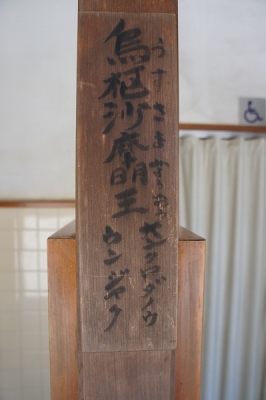 烏枢沙摩明王
うすさまみょうおう
オンクロダノウ
ウンジャク